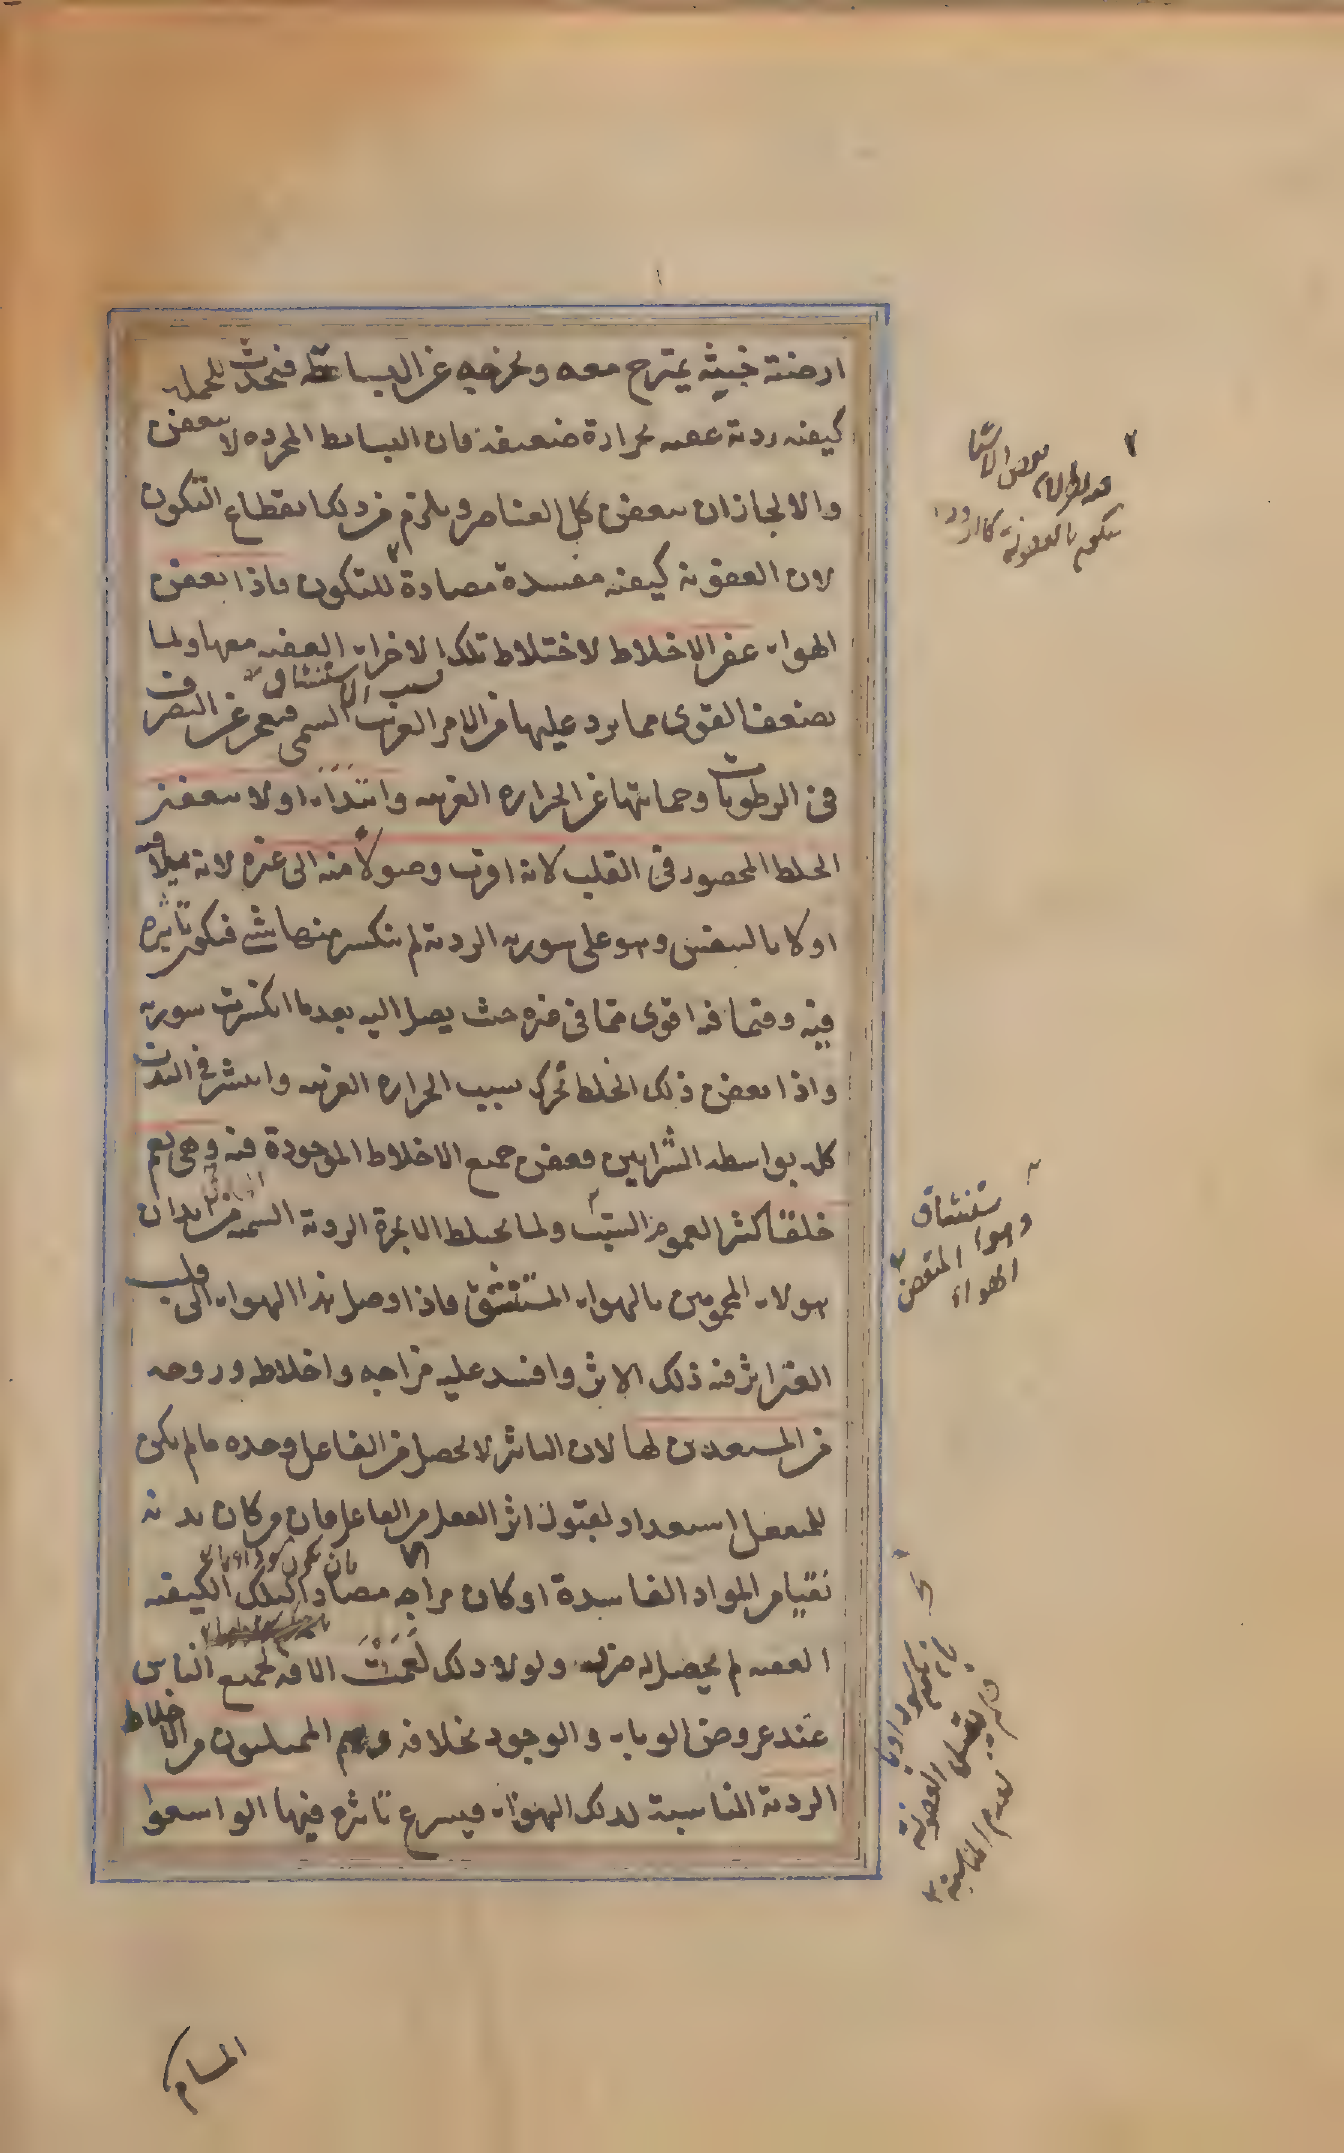 ارضية خبيثة يمتزج معه ويخرجه عن البساطة فيحدث للجملة
كيفية ردية عفنة بحرارة ضعيفة فان البسايط المجردة لا يتعفن
والا لجاز ان يتعفن كل العناصر ويلزم من ذلك انقطاع التكون
لان العفونة كيفية مفسدة مضادة للتكون فاذا تعفن
الهواء عفن الاخلاط لاختلاط تلك الاجزاء العفنة معها ولما
يضعف القوى مما يرد عليها من الامر الغريب السمى بسبب الاستنشاق فيعجز عن التصرف
فى الرطوبات وحمايتها عن الحرارة الغريبة وابتداء اولا بتعفين
الخلط المحصور فى القلب لانه اقرب وصولا منه الى غيره لانه
اولا بالتعفين وهو على سورته الردية لم ينكسر منها شئ فيكون تاثيره
فيه وفيما فيه اقوى مما فى غيره حيث يصل اليه بعد ما انكسرت سورته
واذا تعفن ذلك الخلط تحرك بسبب الحرارة الغريبة وانتشر فى البدن
كله بواسطة الشرايين فعفن جميع الاخلاط الموجودة فيه وهى تعم
خلقا كثيرا لعموم السبب ولما يختلط الابخرة الردية السمية من ابدان
هولاء المحمومين بالهواء المستنشق فاذا وصل هذا الهواء الى قلب
الغير اثر فيه ذلك الاثر وافسد عليه مزاجه واخلاطه وروحه
من المستعدين لها لان التاثير لا يحصل من الفاعل وحده ما لم يكن
للمنفعل استعداد لقبول اثر الفعل من الفاعل فان من كان بدنه
نقيا من المواد الفاسدة او كان مزاجه مضادا لتلك الكيفية
العفنة لم يحصل له ضرر ولولا ذلك لعمت الافة لجميع الناس
عند عروض الوباء والوجود بخلافه وهم الممتلئون من الاخلاط
الردية المناسبة لذلك الهواء فيسرع تاثره فيها الواسعوا
بعض الاشيا
بالعفونة
ستنشاق
وهو المتعفن
الهواء
العفونة
لعدم المناسبة
المسام